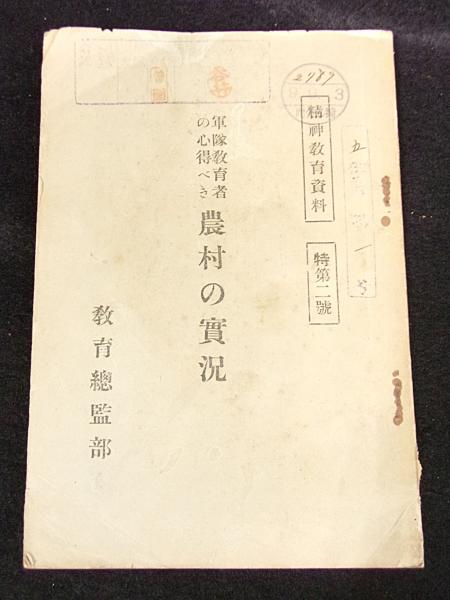 2989
9.9.3
精神教育資料
特第二號
軍隊教育者
の心得べき
農村の實況
教育總監部